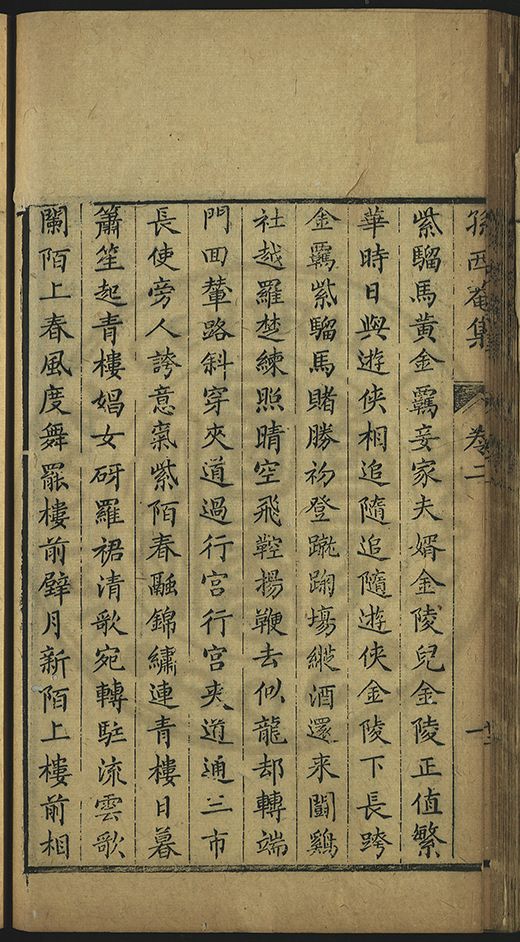 孫西菴集 卷二
紫騮馬黃金羈妾家夫婿金陵兒金陵正値繁
華時日與遊俠相追隨追隨遊俠金陵下長跨
金羈紫騮馬賭勝初登蹴踘場縱酒還來鬭鷄
社越羅楚練照晴空飛鞚揚鞭去似龍却轉端
門回輦路斜穿夾道過行宮行宮夾道通三市
長使旁人誇意氣紫陌春融錦繡連青樓日暮
簫笙起青樓娼女砑羅裙清歌宛轉駐流雲歌
闌陌上春風度舞罷樓前璧月新陌上樓前相